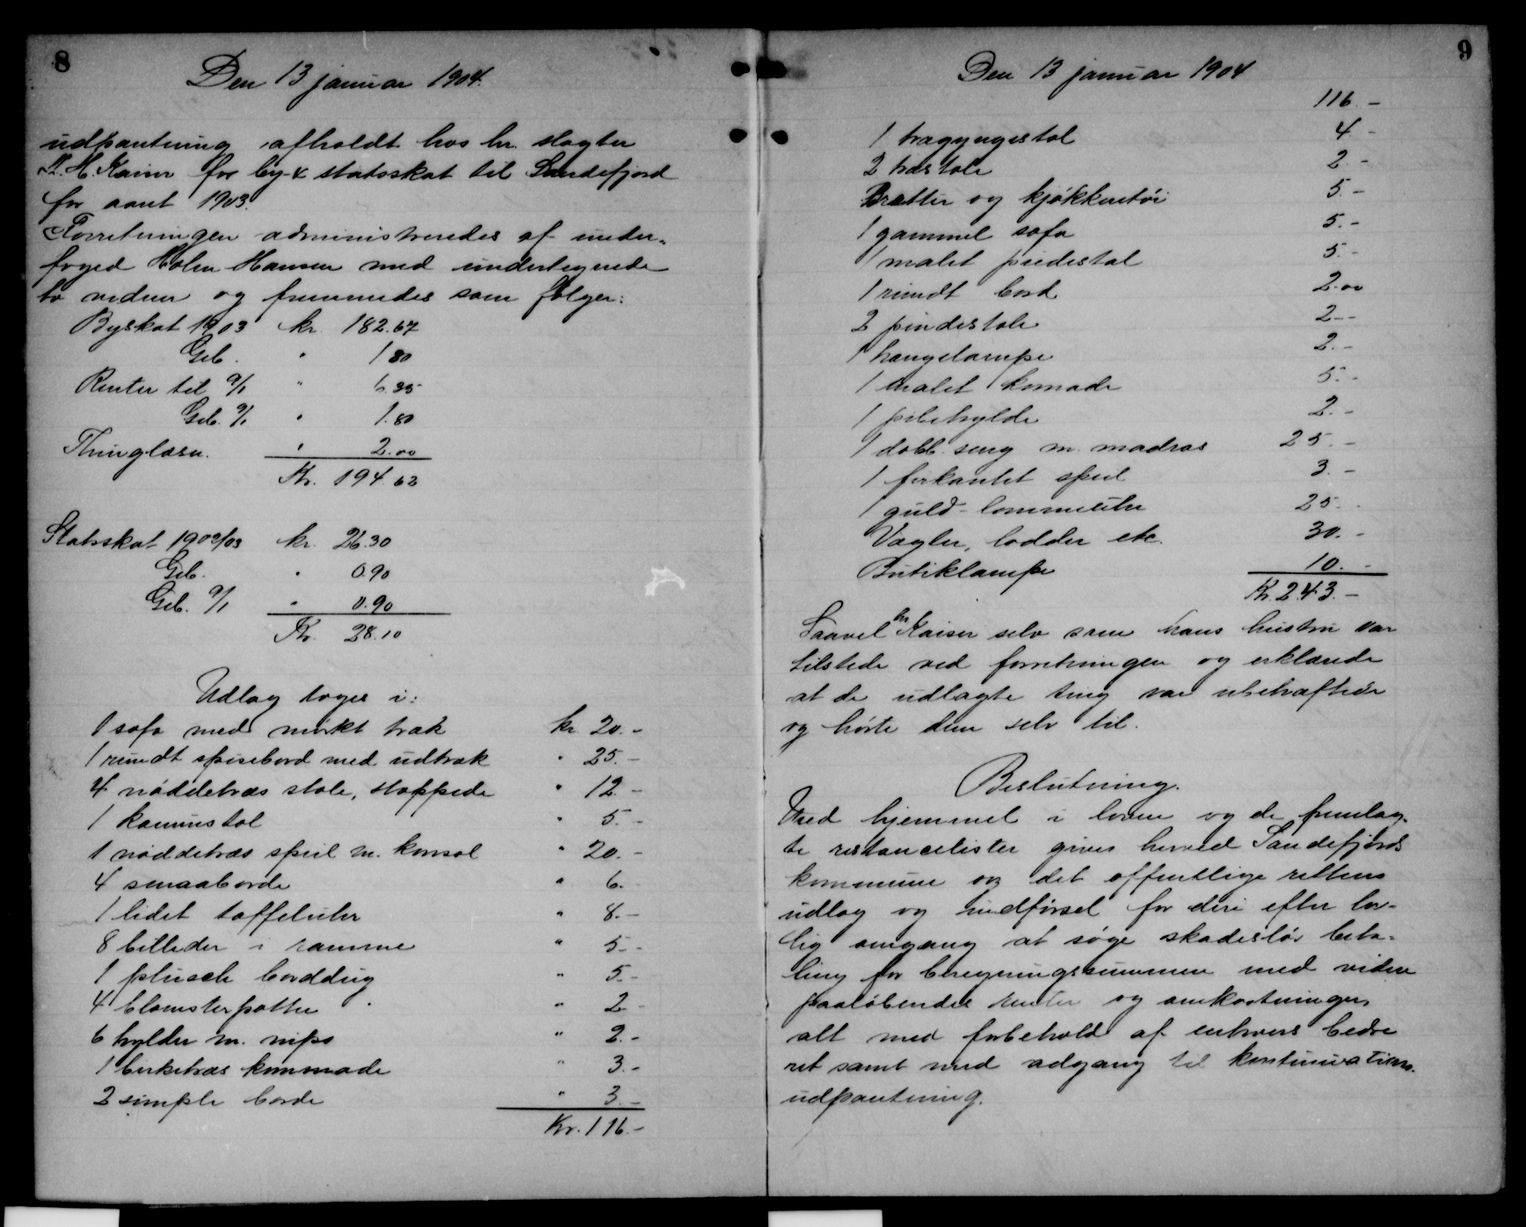 8
Den 13 januar 1904.
udpantning afholdt hos hr. slagter
M. H. Kaiser for by- & statsskat til Sandefjord
for aaret 1903.
Forretningen administreredes af under-
foged Holm Hansen med undertegnede
to vidner og fremmedes som følger:
Byskat 1903 kr. 182.67
Geb. " 1 80
Renter til % " 6.35
Geb. % " 1.80
Thinglæsn. " 2.00
Kr. 194.62
Statsskat 1902/03 kr. 26.30
Geb. " 0.90
Geb. % " 0.90
Kr. 28.10
Udlag toges i:
1 sofa med mørkt træk kr. 20.-
1 rundt spisebord med udtræk " 25.-
4 nøddetræs stole, stoppede " 12.-
1 kaminstol " 5.-
1 nøddetræs speil m. konsol " 20.-
4 smaaborde " 6.-
1 lidet taffeluhr " 8.-
8 billeder i ramme " 5.-
1 plusch borddug " 5.-
4 blomsterpotter " 2.-
6 hylder m. nips " 2.-
1 birketræs kommode " 3.-
2 simple borde " 3.-
Kr. 116.-
9
Den 13 januar 1904
116.-
1 trægyngestol 4.-
2 træstole 2.-
Bretter og kjøkkentøi 5.-
1 gammel sofa 5.-
1 malet piedestal 5.-
1 rundt bord 2.00
2 pindestole 2.-
1 hængelampe 2.-
1 malet komode 5.-
1 pibehylde 2.-
1 dobb. seng m. madras 25.-
1 firkantet speil 3.-
1 guld-lommeuhr 25.-
Vægter, lodder etc. 30.-
Butiklampe 10.-
Kr. 243.-
Saavel hr Kaiser selv som hans hustru var
tilstede ved forretningen og erklærede
at de udlagte ting var ubehæftede
og hørte dem selv til.
Beslutning.
Med hjemmel i loven og de fremlag-
te restancelister gives herved Sandefjords
kommune og det offentlige rettens
udlæg og indførsel for deri efter lov-
lig omgang at søge skadesløs beta-
ling for beregningssummen med videre
paaløbendes renter og omkostninger,
alt med forbehold af enhvers bedre
ret samt med adgang til kontinuations-
udpantning.